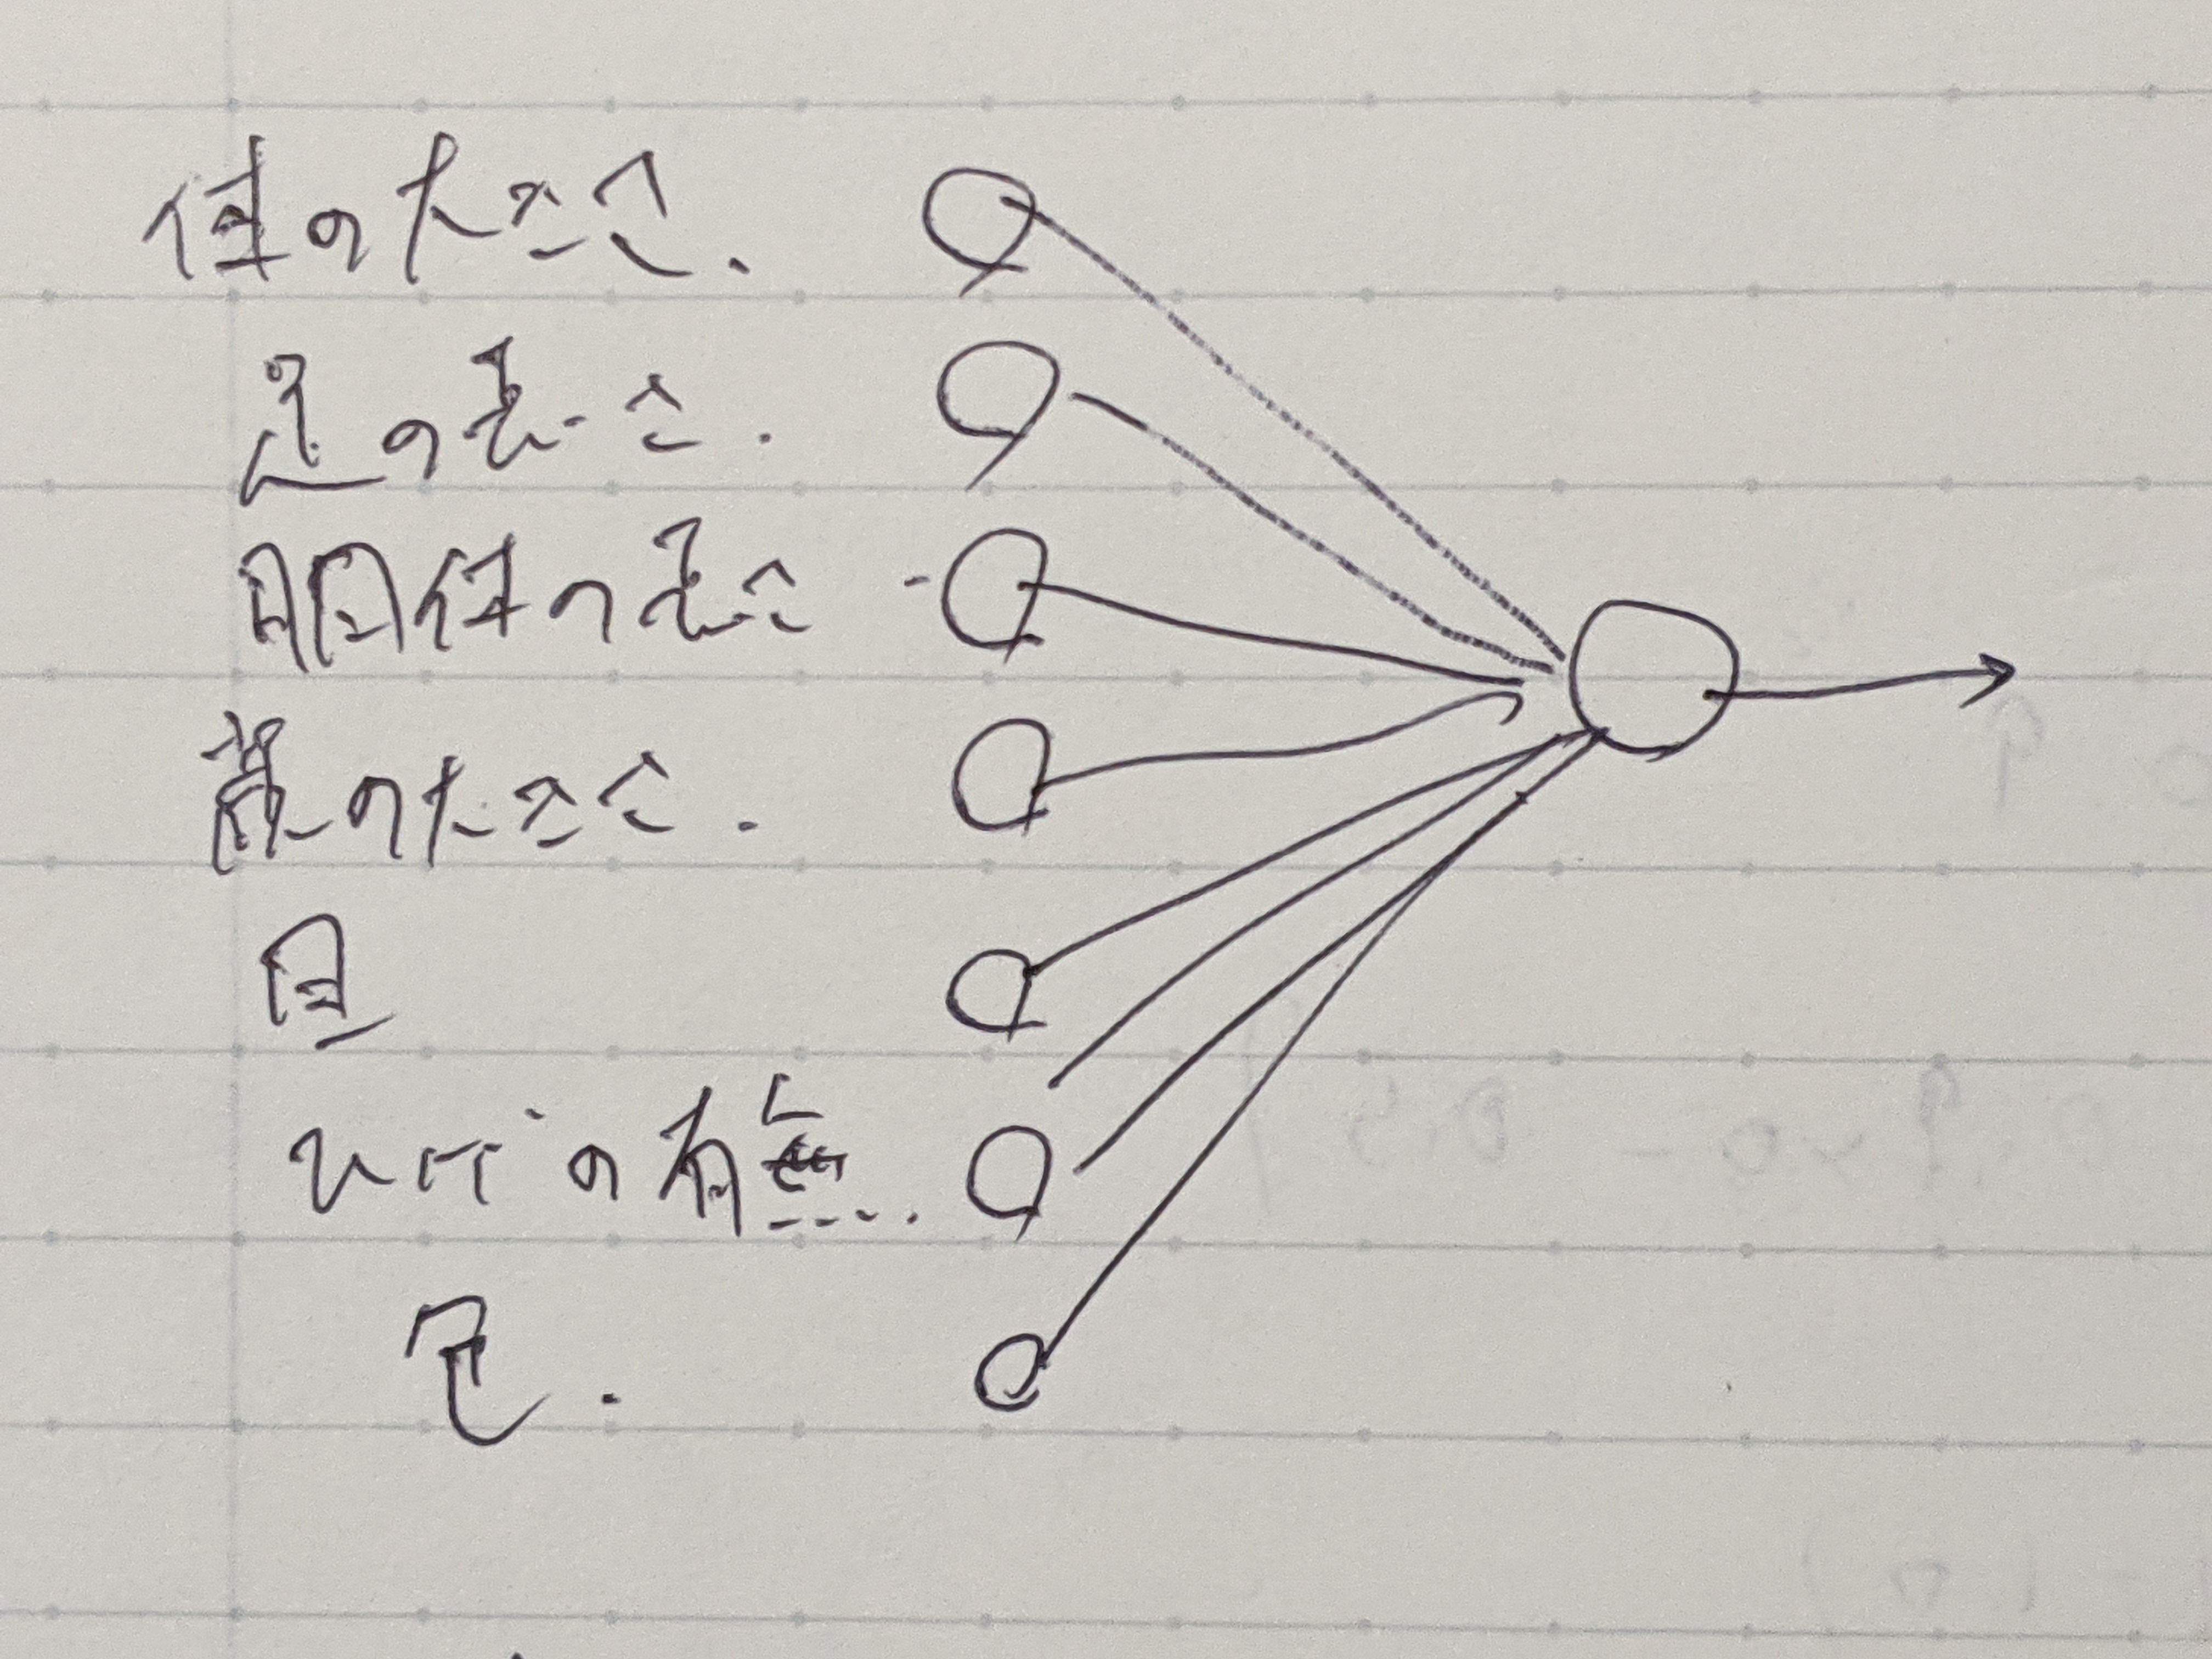 体の大きさ.
足の長さ.
胴体の長さ
顔の大きさ.
目
ひげの有無
色.